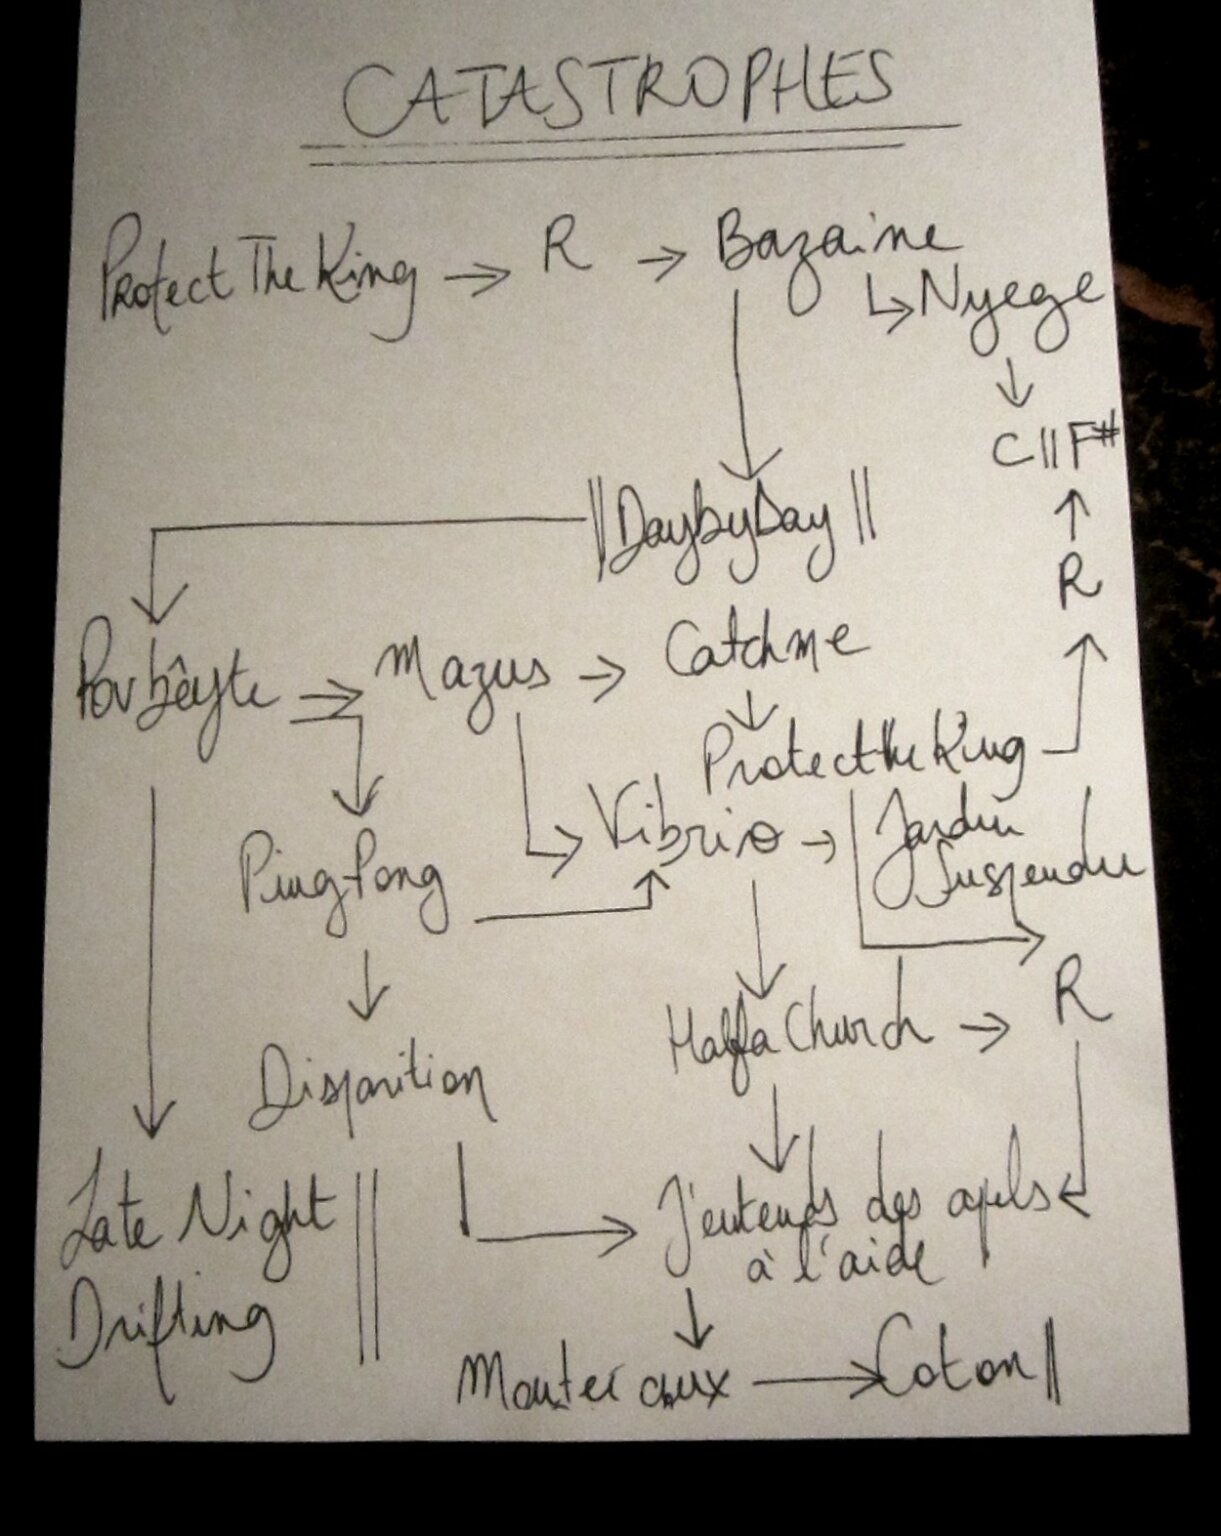 CATASTROPHES
Protect The King → R → Bazaine
↳ Nyege
↓
C || F#
↑
|| Day by Day ||
R
Mazus → Catchme
↓
Protect the King
Vibrio → Jardin
Suspendu
Ping Pong
↓
R
Halfa Church →
Disparition
Late Night ||
J'entends des apels
à l'aide
Drifting
↓
Monter aux → Coton ||